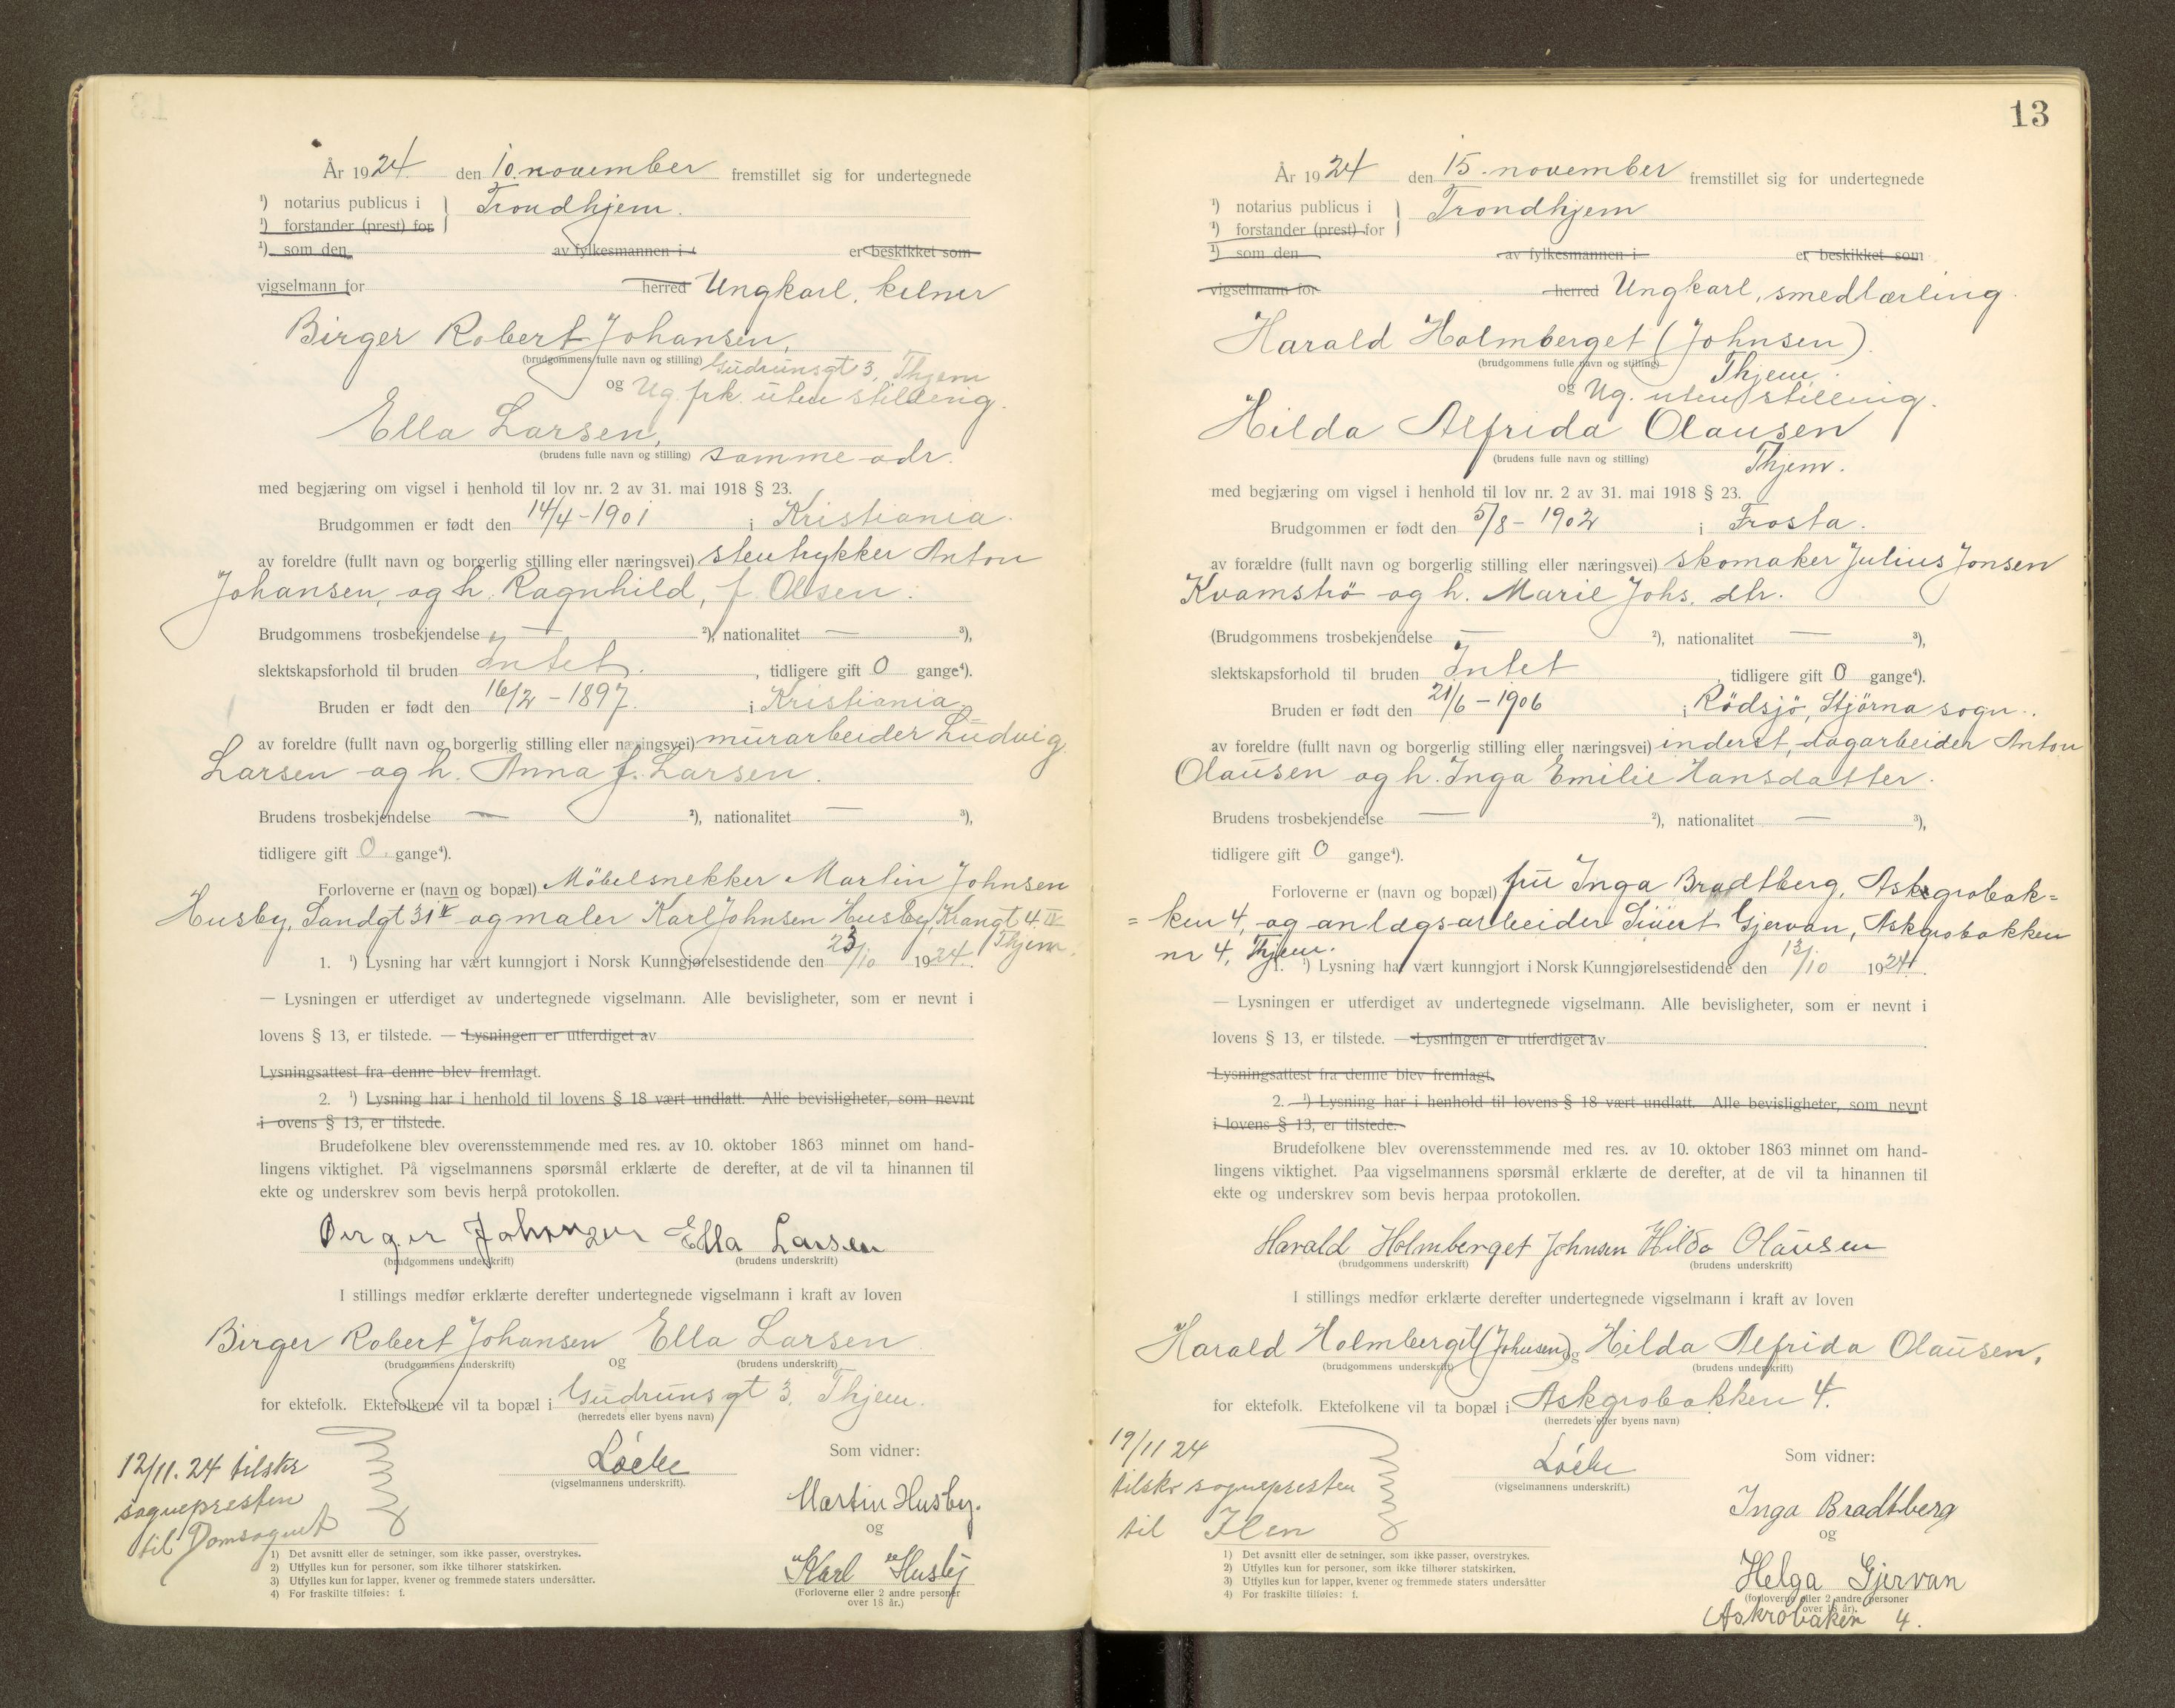 År 1924 den 10. november fremstillet sig for undertegnede
¹) notarius publicus i } Trondhjem.
¹) forstander (prest) for
¹) som den av fylkesmannen i er beskikket som
vigselmann for herred Ungkarl, kelner
Birger Robert Johansen,
(brudgommens fulle navn og stilling) Gudrunsgt 3, Thjem
og Ug. frk. uten stilling.
Ella Larsen,
(brudens fulle navn og stilling) samme adr.
med begjæring om vigsel i henhold til lov nr. 2 av 31. mai 1918 § 23.
Brudgommen er født den 14/4-1901 i Kristiania.
av foreldre (fullt navn og borgerlig stilling eller næringsvei) stentrykker Anton
Johansen, og h. Ragnhild, f. Olsen.
Brudgommens trosbekjendelse — ²), nationalitet — ³),
slektskapsforhold til bruden Intet. , tidligere gift 0 gange⁴).
Bruden er født den 16/2 - 1897. i Kristiania.
av foreldre (fullt navn og borgerlig stilling eller næringsvei) murarbeider Ludvig
Larsen og h. Anna f. Larsen.
Brudens trosbekjendelse — ²), nationalitet — ³),
tidligere gift 0. gange⁴).
Forloverne er (navn og bopæl) Möbelsnekker Martin Johnsen
Husby, Sandgt 31 II og maler Karl Johnsen Husby, Krangt 4 IV
Thjem.
1. ¹) Lysning har vært kunngjort i Norsk Kunngjørelsestidende den 23/10 1924.
— Lysningen er utferdiget av undertegnede vigselmann. Alle bevisligheter, som er nevnt i
lovens § 13, er tilstede. — Lysningen er utferdiget av
Lysningsattest fra denne blev fremlagt.
2. ¹) Lysning har i henhold til lovens § 18 vært undlatt. Alle bevisligheter, som nevnt
i ovens § 13, er tilstede.
Brudefolkene blev overensstemmende med res. av 10. oktober 1863 minnet om hand-
lingens viktighet. På vigselmannens spørsmål erklærte de derefter, at de vil ta hinannen til
ekte og underskrev som bevis herpå protokollen.
Birger Johansen Ella Larsen
(brudgommens underskrift) (brudens underskrift)
I stillings medfør erklærte derefter undertegnede vigselmann i kraft av loven
Birger Robert Johansen Ella Larsen
(brudgommens underskrift) og (brudens underskrift)
for ektefolk. Ektefolkene vil ta bopæl i Gudrunsgt 3, Thjem.
(herredets eller byens navn)
12/11. 24 tilskr
sognepresten
til Domsognet
Löche
(vigselmannens underskrift).
Som vidner:
Martin Husby.
og
Karl Husby
(Forloverne eller 2 andre personer
over 18 år.)
1) Det avsnitt eller de setninger, som ikke passer, overstrykes.
2) Utfylles kun for personer, som ikke tilhører statskirken.
3) Utfylles kun for lapper, kvener og fremmede staters undersåtter.
4) For fraskilte tilføies: f.
13
År 1924 den 15. november fremstillet sig for undertegnede
¹) notarius publicus i } Trondhjem
¹) forstander (prest) for
¹) som den av fylkesmannen i er beskikket som
vigselmann for herred Ungkarl, smedlærling.
Harald Holmberget (Johnsen).
(brudgommens fulle navn og stilling) Thjem.
og Ug. uten stilling.
Hilda Alfrida Olausen
(brudens fulle navn og stilling) Thjem.
med begjæring om vigsel i henhold til lov nr. 2 av 31. mai 1918 § 23.
Brudgommen er født den 5/8 - 1902 i Frosta.
av forældre (fullt navn og borgerlig stilling eller næringsvei) skomaker Julius Jonsen
Kvamströ og h. Marie Johs. dtr.
(Brudgommens trosbekjendelse — ²), nationalitet — ³),
slektskapsforhold til bruden Intet , tidligere gift 0 gange⁴).
Bruden er født den 21/6 - 1906 i Rödsjö, Stjörna sogn.
av foreldre (fullt navn og borgerlig stilling eller næringsvei) inderst, dagarbeider Anton
Olausen og h. Inga Emilie Hansdatter.
Brudens trosbekjendelse — ²), nationalitet — ³),
tidligere gift 0 gange⁴).
Forloverne er (navn og bopæl) fru Inga Bradtberg, Askgrobak=
=ken 4, og anlægsarbeider Sivert Gjervan, Askgrobakken
nr 4, Thjem.
1. ¹) Lysning har vært kunngjort i Norsk Kunngjørelsestidende den 13/10 1924.
— Lysningen er utferdiget av undertegnede vigselmann. Alle bevisligheter, som er nevnt i
lovens § 13, er tilstede. — Lysningen er utferdiget av
Lysningsattest fra denne blev fremlagt.
2. ¹) Lysning har i henhold til lovens § 18 vært undlatt. Alle bevisligheter, som nevnt
i lovens § 13, er tilstede.
Brudefolkene blev overensstemmende med res. av 10. oktober 1863 minnet om hand-
lingens viktighet. Paa vigselmannens spørsmål erklærte de derefter, at de vil ta hinannen til
ekte og underskrev som bevis herpaa protokollen.
Harald Holmberget Johnsen Hilda Olausen
(brudgommens underskrift) (brudens underskrift)
I stillings medfør erklærte derefter undertegnede vigselmann i kraft av loven
Harald Holmberget (Johnsen) og Hilda Alfrida Olausen,
(brudgommens underskrift) (brudens underskrift)
for ektefolk. Ektefolkene vil ta bopæl i Askgrobakken 4.
(herredets eller byens navn)
19/11 24
tilskr sognepresten
til Ilen
Löche
(vigselmannens underskrift.)
Som vidner:
Inga Bradtberg
og
Helga Gjervan
(forloverne eller 2 andre personer
over 18 år).
Askrobaken 4.
1) Det avsnitt eller de setninger, som ikke passer, overstrykes.
2) Utfylles kun for personer, som ikke tilhører statskirken.
3) Utfylles kun for lapper, kvener og fremmede staters undersåtter
4) For fraskilte tilføies: f.